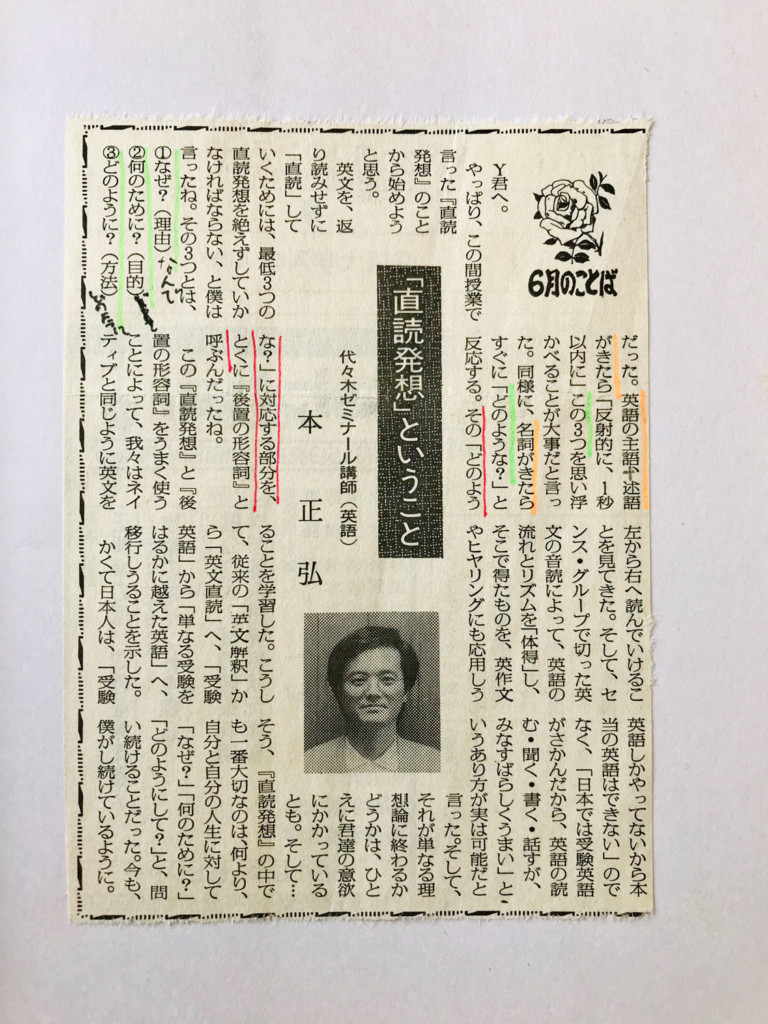 6月のことば
「直読発想」ということ
代々木ゼミナール講師（英語）
本 正弘
Y君へ。
やっぱり、この間授業で
言った『直読
発想』のこと
から始めよう
と思う。
英文を、返
り読みせずに
「直読」して
いくためには、最低3つの
直読発想を絶えずしていか
なければならない、と僕は
言ったね。その3つとは、
①なぜ？（理由）なんで
②何のために？（目的）
③どのように？（方法）
だった。英語の主語＋述語
がきたら「反射的に、1秒
以内に」この3つを思い浮
かべることが大事だと言っ
た。同様に、名詞がきたら
すぐに「どのような？」と
反応する。その「どのよう
な？」に対応する部分を、
とくに『後置の形容詞』と
呼ぶんだったね。
この『直読発想』と『後
置の形容詞』をうまく使う
ことによって、我々はネイ
ティブと同じように英文を
左から右へ読んでいけるこ
とを見てきた。そして、セ
ンス・グループで切った英
文の音読によって、英語の
流れとリズムを「体得」し、
そこで得たものを、英作文
やヒヤリングにも応用しう
ることを学習した。こうし
て、従来の「英文解釈」か
ら「英文直読」へ、「受験
英語」から「単なる受験を
はるかに越えた英語」へ、
移行しうることを示した。
かくて日本人は、「受験
英語しかやってないから本
当の英語はできない」ので
なく、「日本では受験英語
がさかんだから、英語の読
む・聞く・書く・話すが、
みなすばらしくうまい」と
いうあり方が実は可能だと
言った。そして、
それが単なる理
想論に終わるか
どうかは、ひと
えに君達の意欲
にかかっている
とも。そして…
そう、『直読発想』の中で
も一番大切なのは、何より、
自分と自分の人生に対して
「なぜ？」「何のために？」
「どのようにして？」と、問
い続けることだった。今も、
僕がし続けているように。